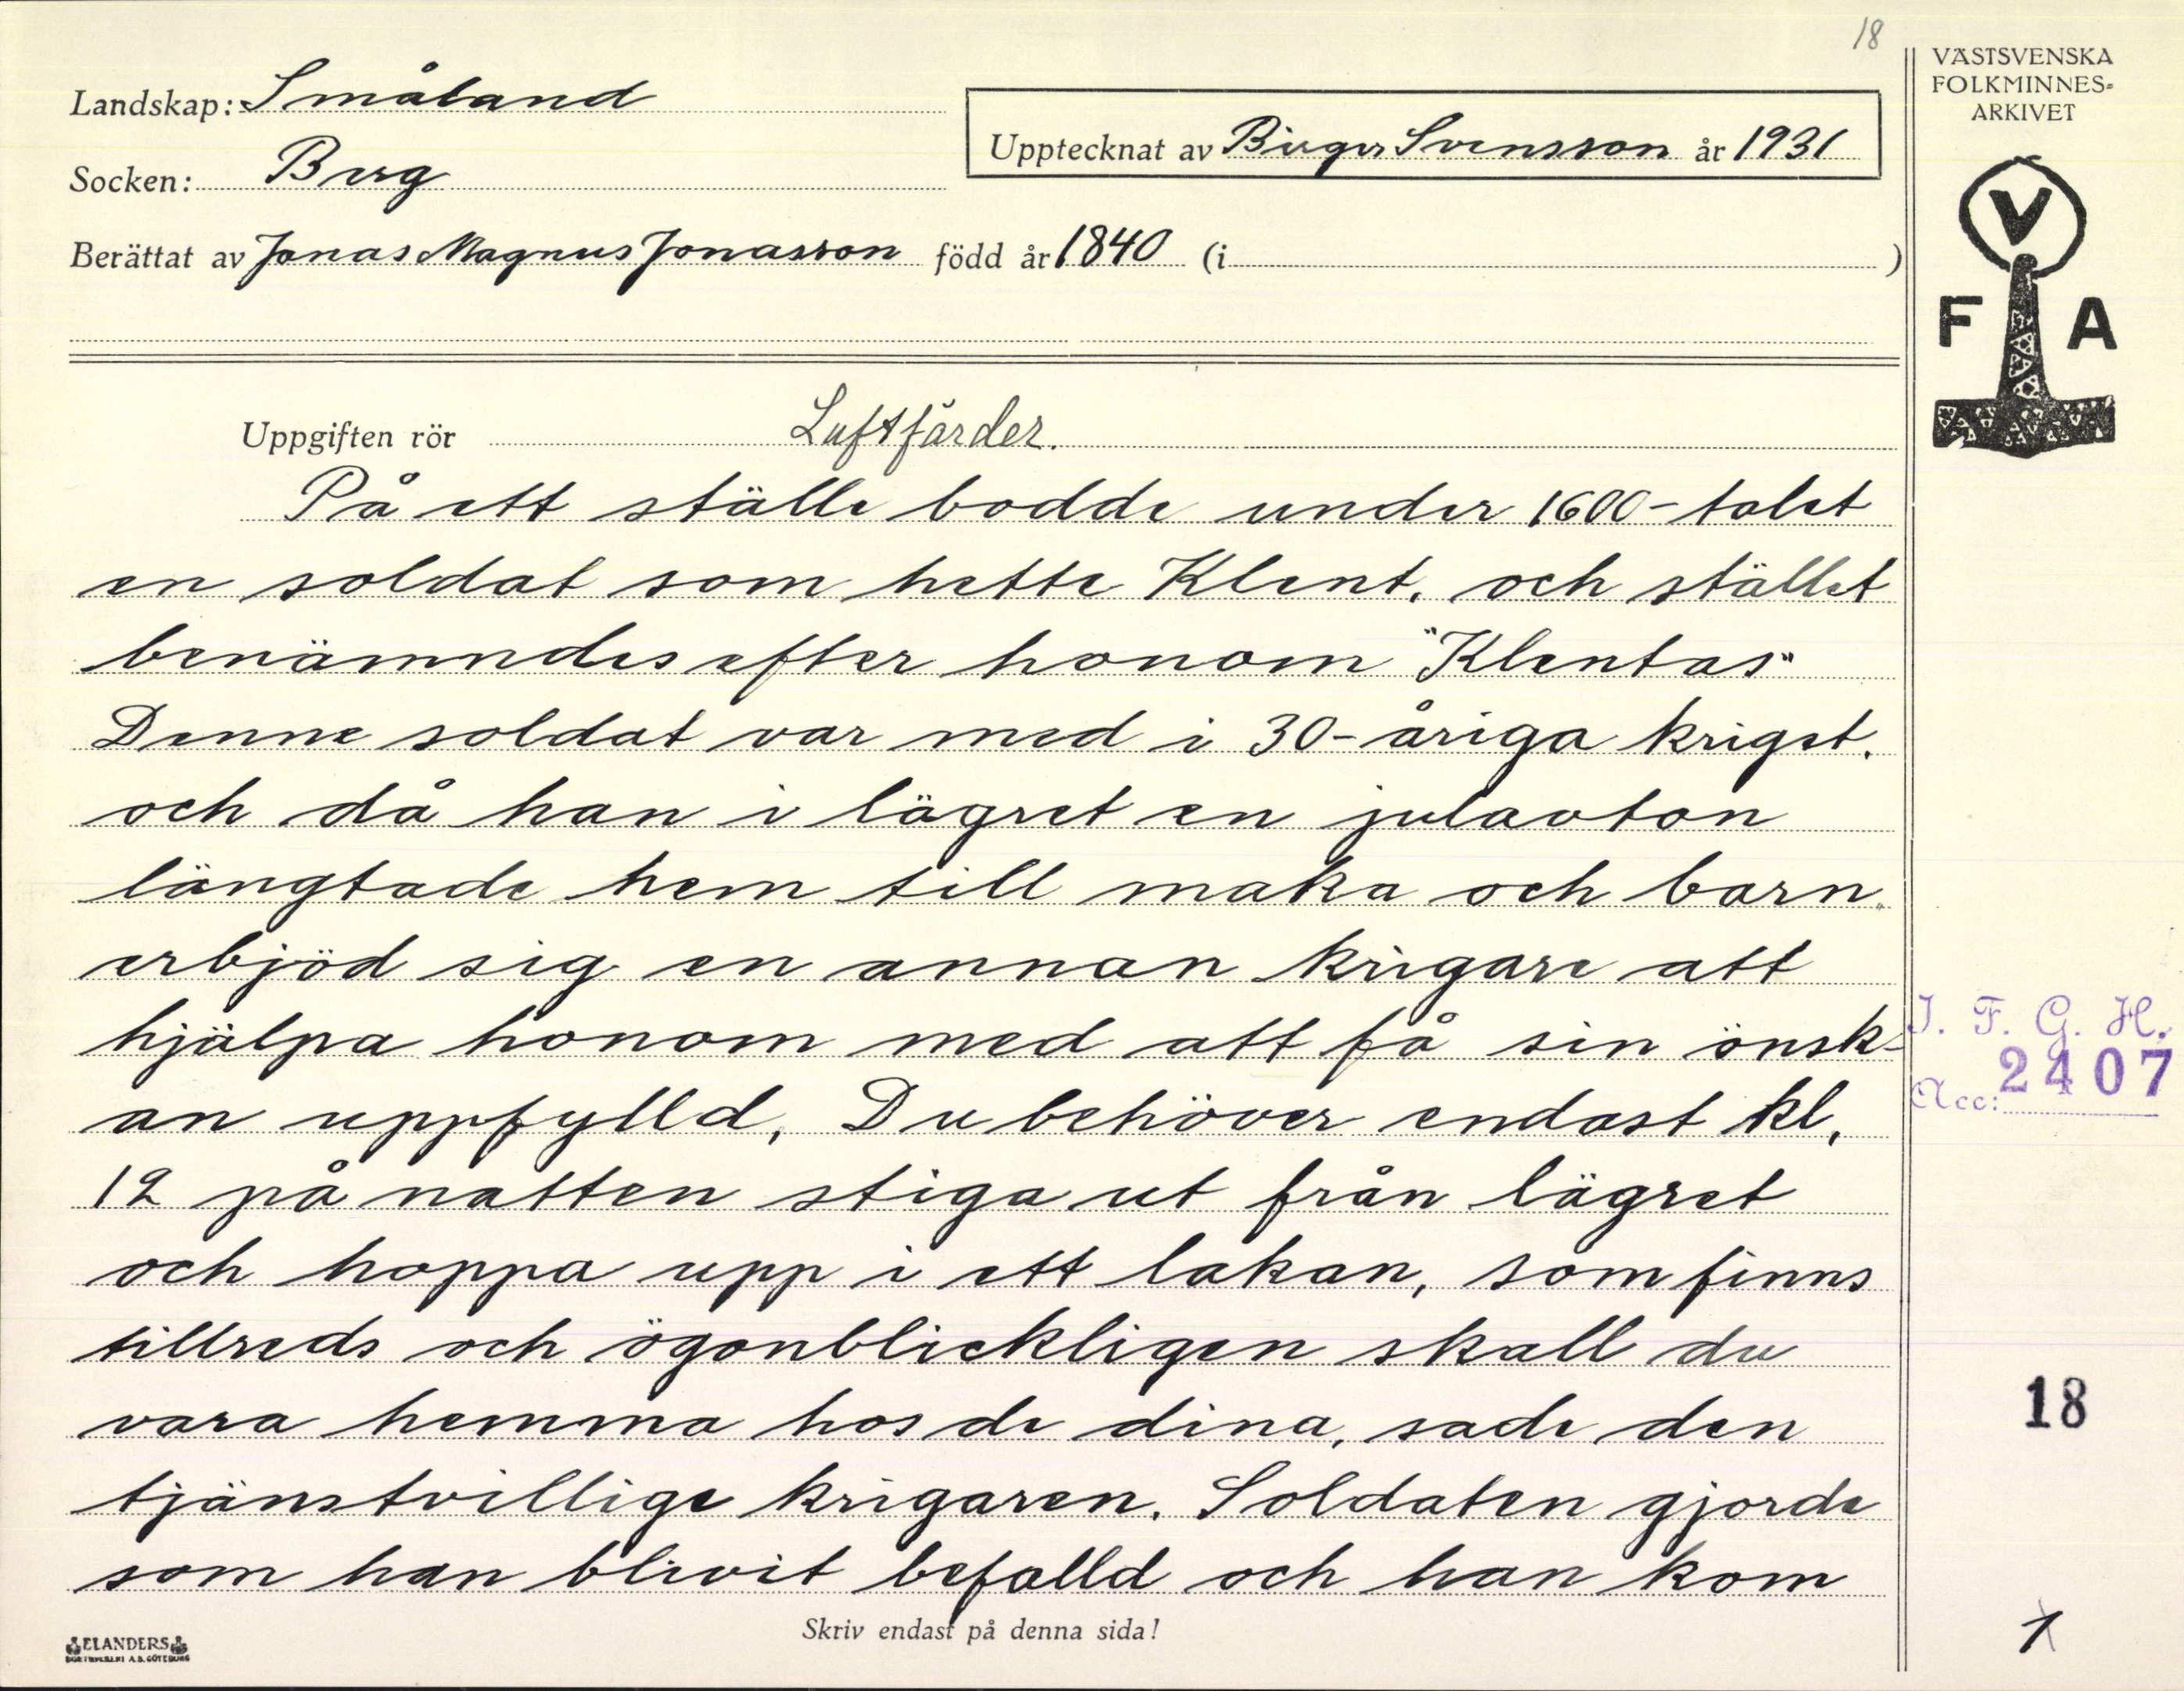 18
VÄSTSVENSKA
FOLKMINNES-
ARKIVET
Landskap: Småland
Upptecknat av Birger Svensson år 1931
Socken: Berg
Berättat av Jonas Magnus Jonasson född år 1840 (i )
V
F A
Uppgiften rör Luftfärder.
På ett ställe bodde under 1600-talet
en soldat som hette Klent, och stället
benämndes efter honom "Klentas"
Denne soldat var med i 30-åriga kriget,
och då han i lägret en julavton
längtade hem till maka och barn,
erbjöd sig en annan krigare att
hjälpa honom med att få sin önsk-
an uppfylld, Du behöver endast kl,
12 på natten stiga ut från lägret
och hoppa upp i ett lakan, som finns
tillreds och ögonblickligen skall du
vara hemma hos de dina, sade den
tjänstvillige krigaren. Soldaten gjorde
som han blivit befalld och han kom
I. F. G. H.
Acc: 2407
18
1
Skriv endast på denna sida!
ELANDERS
BOKTRYCKERI A.B. GÖTEBORG